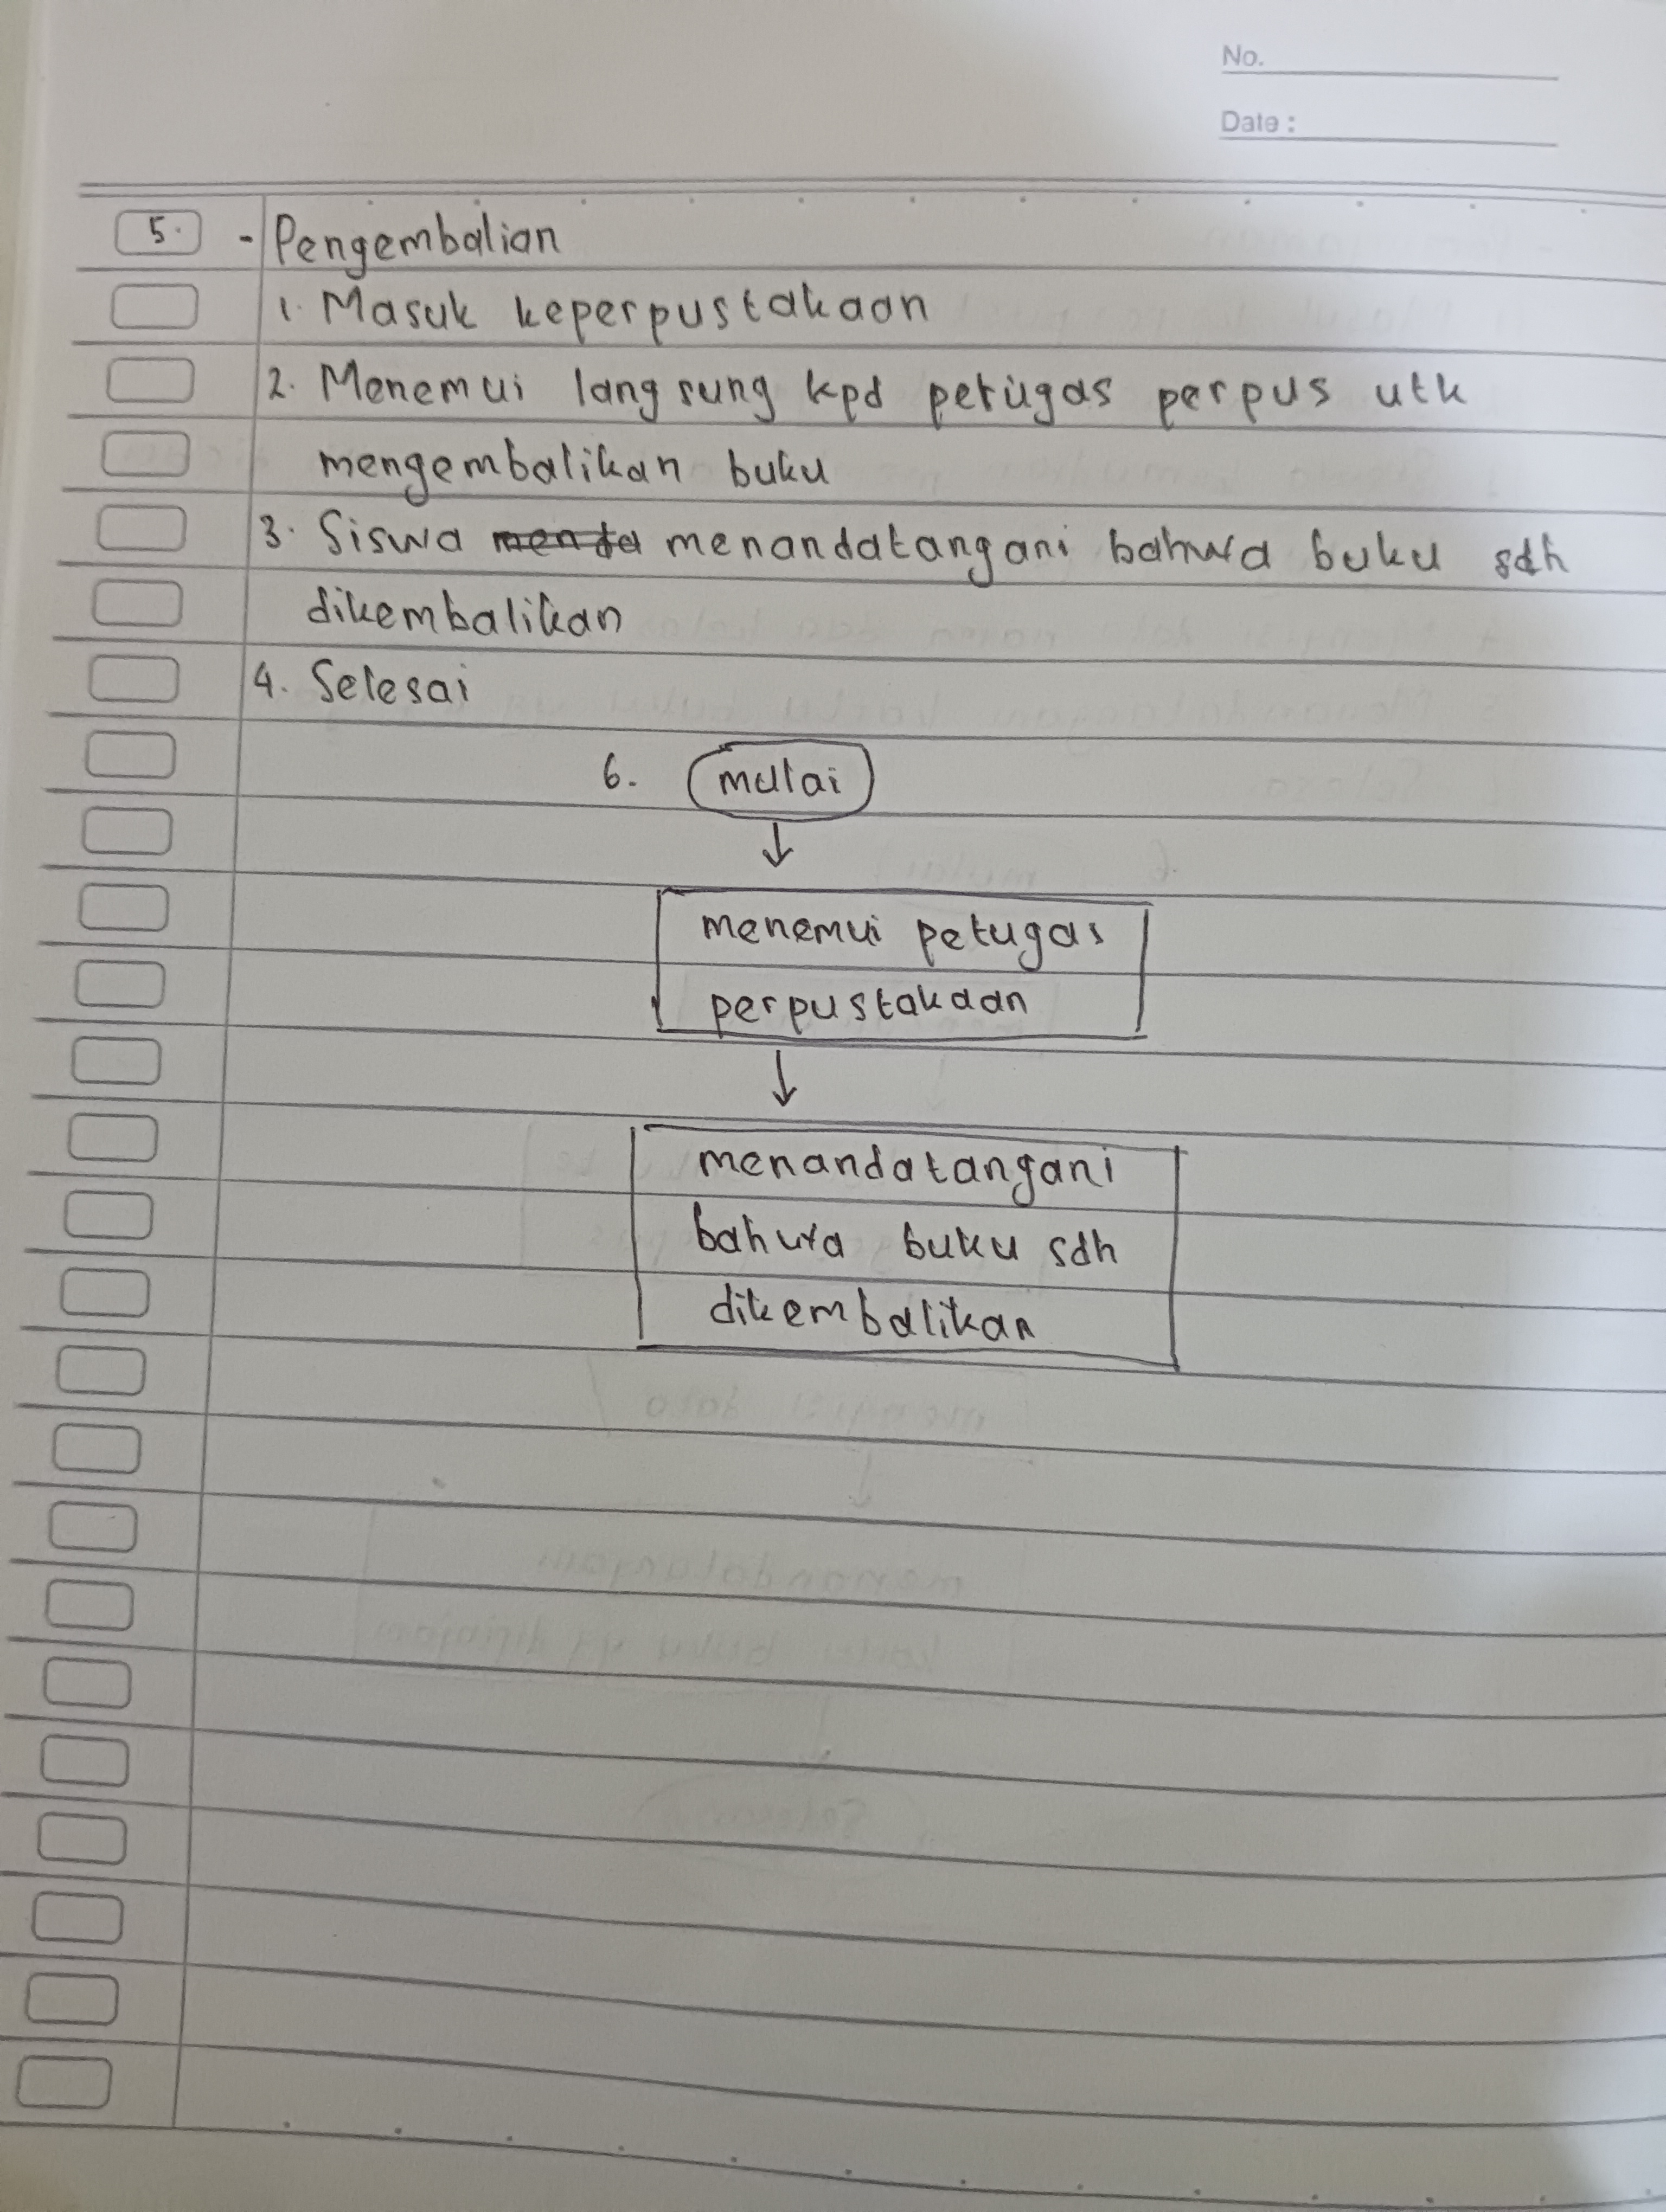 No.
Date :
5. - Pengembalian
1. Masuk keperpustakaan
2. Menemui langsung kpd petugas perpus utk
mengembalikan buku
3. Siswa menandatangani bahwa buku sdh
dikembalikan
4. Selesai
6. mulai
menemui petugas
perpustakaan
menandatangani
bahwa buku sdh
dikembalikan